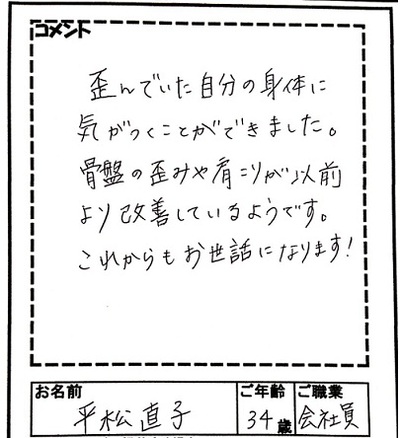 コメント
歪んでいた自分の身体に
気がつくことができました。
骨盤の歪みや肩こりが以前
より改善しているようです。
これからもお世話になります!
お名前 ご年齢 ご職業
平松直子 34歳 会社員